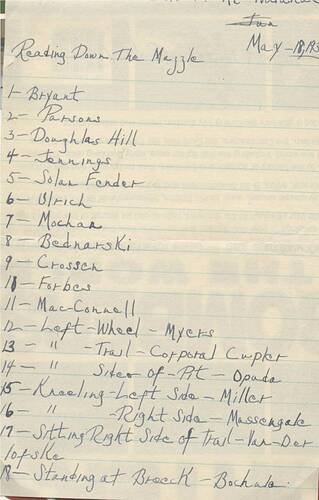 Jan
May-18,193
Reading Down The Mazzle
1- Bryant
2- Parsons
3- Doughlas Hill
4- Jennings
5- Solan Fender
6- Ulrich
7- Mochan
8- Bednarski
9- Crossen
10- Forbes
11- Mac-Connell
12- Left-Wheel-Myers
13- " -Trail-Corporal Cupter
14- " Sites of-Pit- Opada
15- Kneeling-Left Side-Miller
16- " -Right Side-Massengale
17- Sitting Right Site of Trail-Van-Der
lofske
18- Standing at Breeck-Bochula.